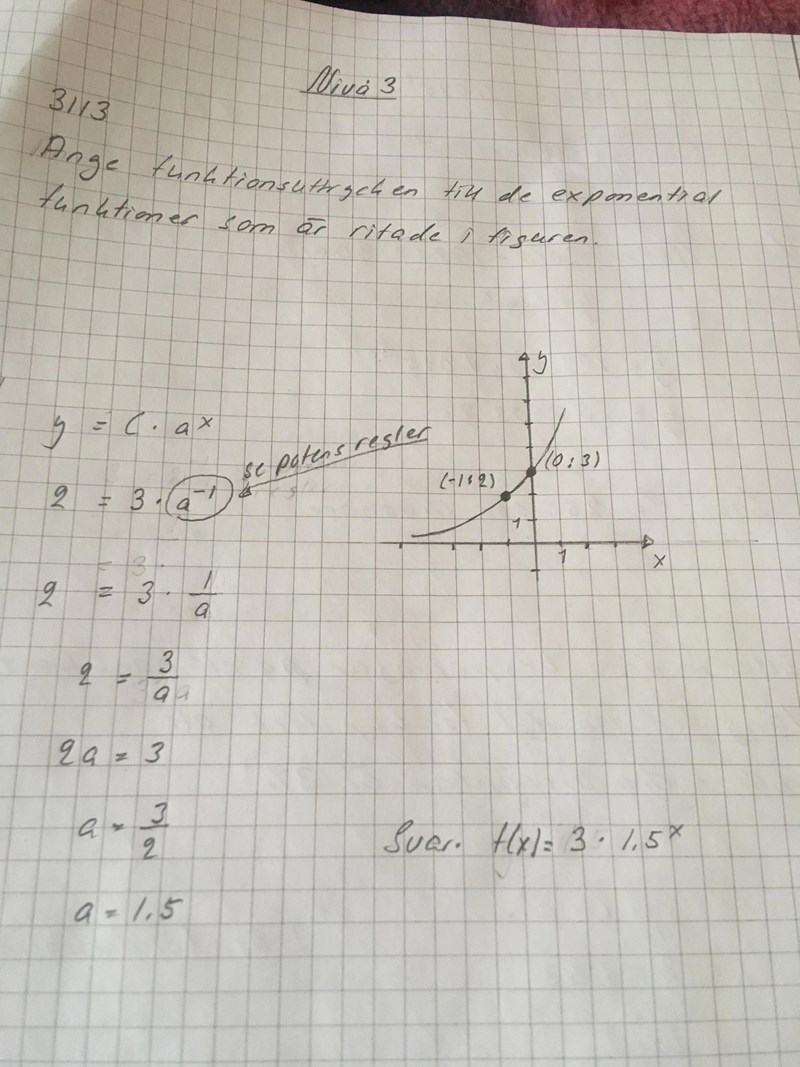 Nivå 3
3113
Ange funktionsuttrycken till de exponential
funktioner som är ritade i figuren.
y
(0;3)
(-1;2)
1
1
x
y = C · a^x
se potens regler
2 = 3 · a^-1
2 = 3 · 1/a
2 = 3/a
2a = 3
a = 3/2
a = 1.5
Svar. f(x) = 3 · 1.5^x